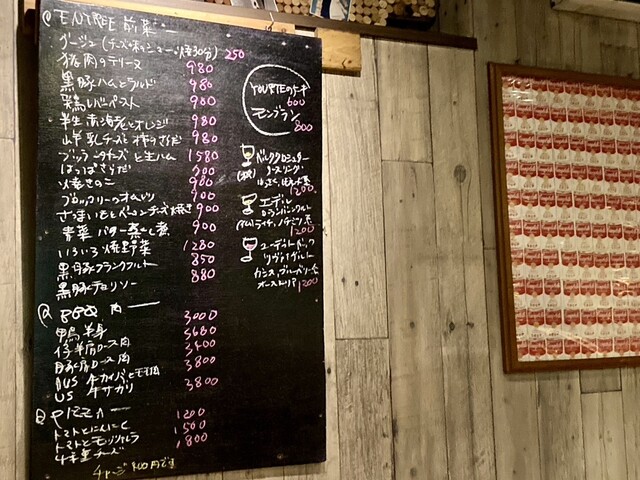 @ ENTREE 前菜 ー
グージュ(チーズ味のシュー・焼30分) 250
猪肉のテリーヌ 980
黒豚ハムとラルド 980
鶏レバーペースト 900
半生 赤海老とオレンジ 980
山羊乳チーズと柿のさらだ 980
ブッラータチーズと生ハム 1580
はっぱさらだ 700
焼きのこ 900
ブロッコリーのオムレツ 900
さつまいもとベーコンチーズ焼き 900
青菜 バター蒸し煮 900
いろいろ焼野菜 1280
黒豚フランクフルト 850
黒豚チョリソー 880
@ 肉 ー
鴨半身 3000
仔羊肩ロース肉 3600
豚肩ロース肉 3400
AUS 牛カイノミとモモ肉 3800
US 牛サガリ 3800
@ PIZZA ー
トマトとにんにく 1200
トマトとモッツァレラ 1500
4種チーズ 1800
チャージ400円です
600
モンブラン
800
リースリング
1200
エーデル
1200
カシス、ブルーベリー系
オーストリア 1200